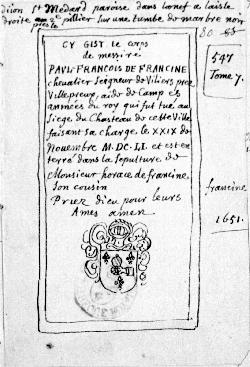 dijon St Medard paroise dans la nef a laisle
droite pres le 2e pillier sur une tumbe de marbre noir
80. 82
CY GIST le corps
de messire
PAVL FRANCOIS DE FRANCINE
chevalier Seigneur de Viliers prez
Villepreux, aide de Camp es
armées du roy qui fut tué au
siege du Chasteau de cette Ville
faisant sa charge, le XXIX de
Novembre M.DC.LI. et est en
terré dans la sepulture de
Monsieur horace de francine,
Son cousin
Priez dieu pour leurs
Ames amen
547
Tome 7.
francine
1651.